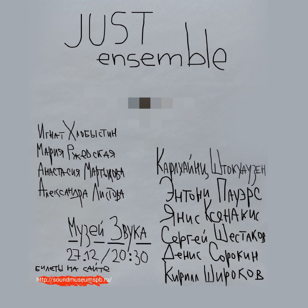 JUST
ensemble
Игнат Хлобыстин
Мария Ржевская
Анастасия Мартынова
Александра Листова
Музей Звука
27.12 / 20:30
билеты на сайте
http://soundmuseumspb.ru/
Карлхайнц Штокхаузен
Энтони Пауэрс
Янис Ксенакис
Сергей Шестаков
Денис Сорокин
Кирилл Широков